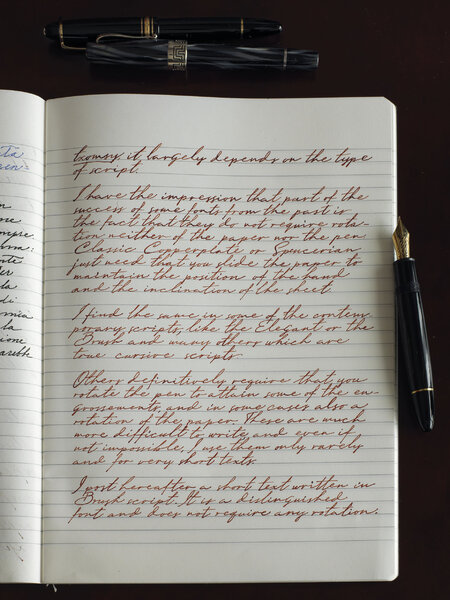 ta
ain-
n
one
mpre.
orma:
nte
er
la
di
mia
la
ione
txomsy. it largely depends on the type
of script.
I have the impression that part of the
success of some fonts from the past is
the fact that they do not require rota-
tion neither of the paper nor the pen
Classic Copperplate or Spencerian
just need that you slide the paper to
maintain the position of the hand
and the inclination of the sheet.
I find the same in some of the contem-
porary scripts, like the Elegant or the
Brush and many others which are
true cursive scripts.
Others definitively require that you
rotate the pen to attain some of the en-
grossements, and in some cases also a
rotation of the paper. These are much
more difficult to write and even if
not impossible, I use them only rarely
and for very short texts.
I post hereafter a short text written in
Brush script. It is a distinguished
font and does not require any rotation.